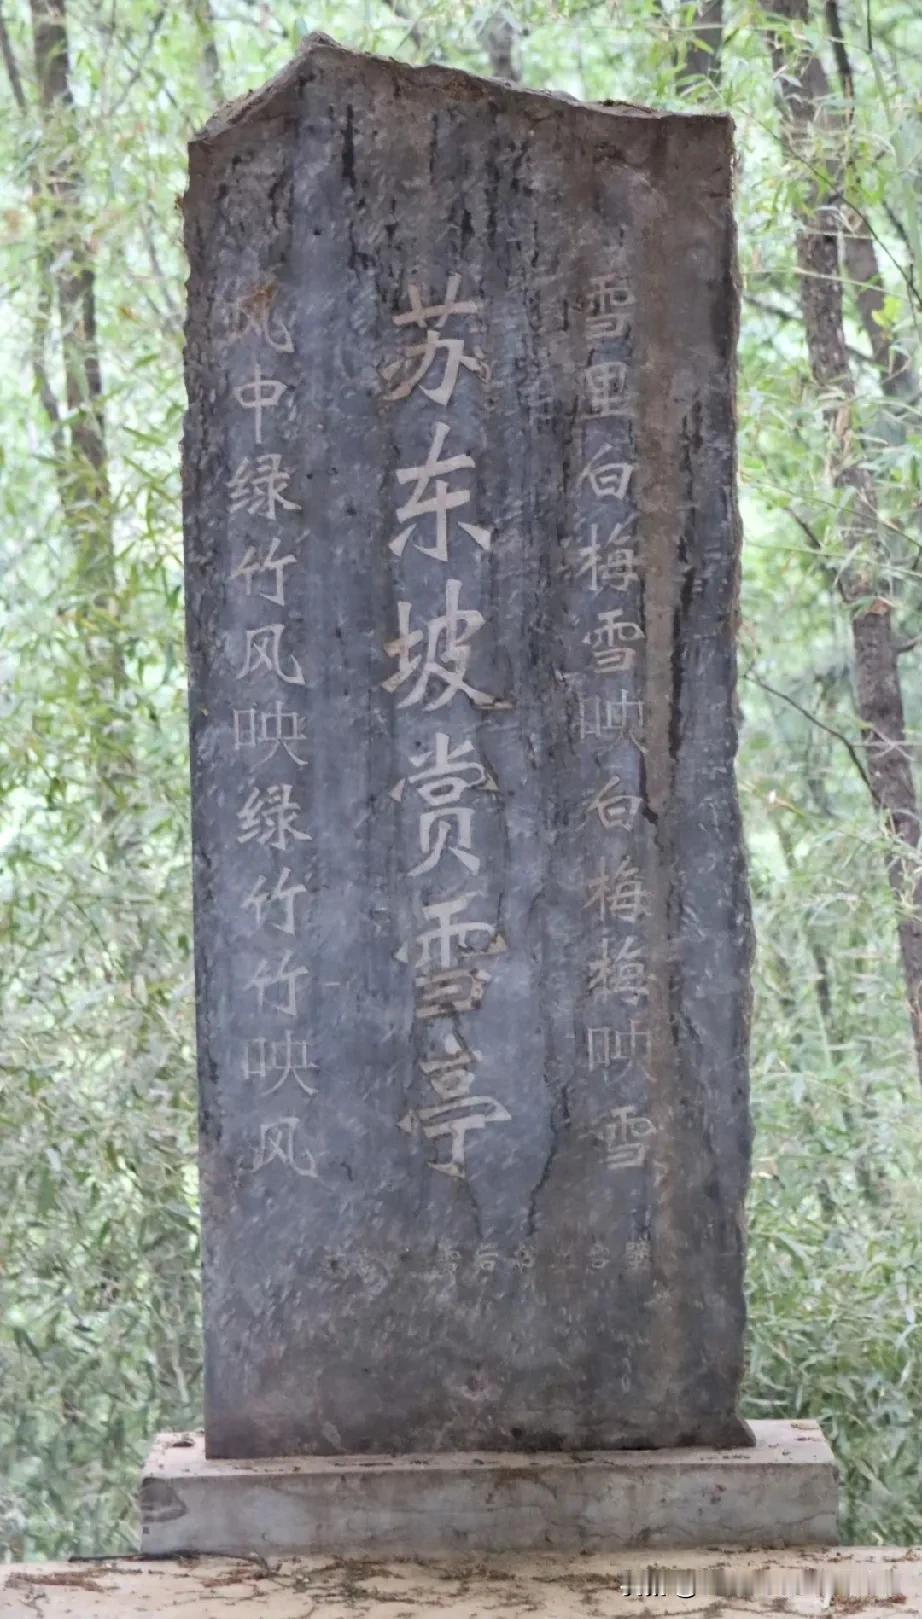 雪里白梅雪映白梅梅映雪
苏东坡赏雪亭
风中绿竹风映绿竹竹映风